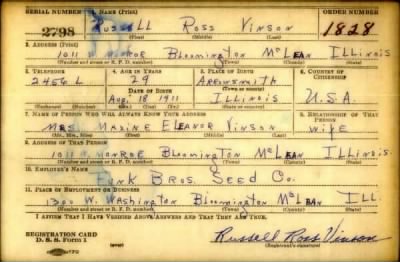 SERIAL NUMBER 1. NAME (Print) ORDER NUMBER
2798 Russell Ross Vinson 1828
(First) (Middle) (Last)
2. ADDRESS (Print)
1011 W. Monroe Bloomington McLean Illinois
(Number and street or R. F. D. number) (Town) (County) (State)
3. TELEPHONE 4. AGE IN YEARS 5. PLACE OF BIRTH 6. COUNTRY OF CITIZENSHIP
2456L 29 Arrowsmith
DATE OF BIRTH (Town or county)
Aug. 18 1911 Illinois U.S.A.
(Mo.) (Day) (Yr.) (State or country)
7. NAME OF PERSON WHO WILL ALWAYS KNOW YOUR ADDRESS 8. RELATIONSHIP OF THAT PERSON
Mrs. Maxine Eleanor Vinson Wife
(Mr., Mrs., Miss) (First) (Middle) (Last)
9. ADDRESS OF THAT PERSON
1011 W. Monroe Bloomington McLean Illinois
(Number and street or R. F. D. number) (Town) (County) (State)
10. EMPLOYER'S NAME
Funk Bros. Seed Co.
11. PLACE OF EMPLOYMENT OR BUSINESS
1300 W. Washington Bloomington McLean Ill.
(Number and street or R. F. D. number) (Town) (County) (State)
I AFFIRM THAT I HAVE VERIFIED ABOVE ANSWERS AND THAT THEY ARE TRUE.
REGISTRATION CARD
D. S. S. Form 1
Russell Ross Vinson
(Registrant's signature)